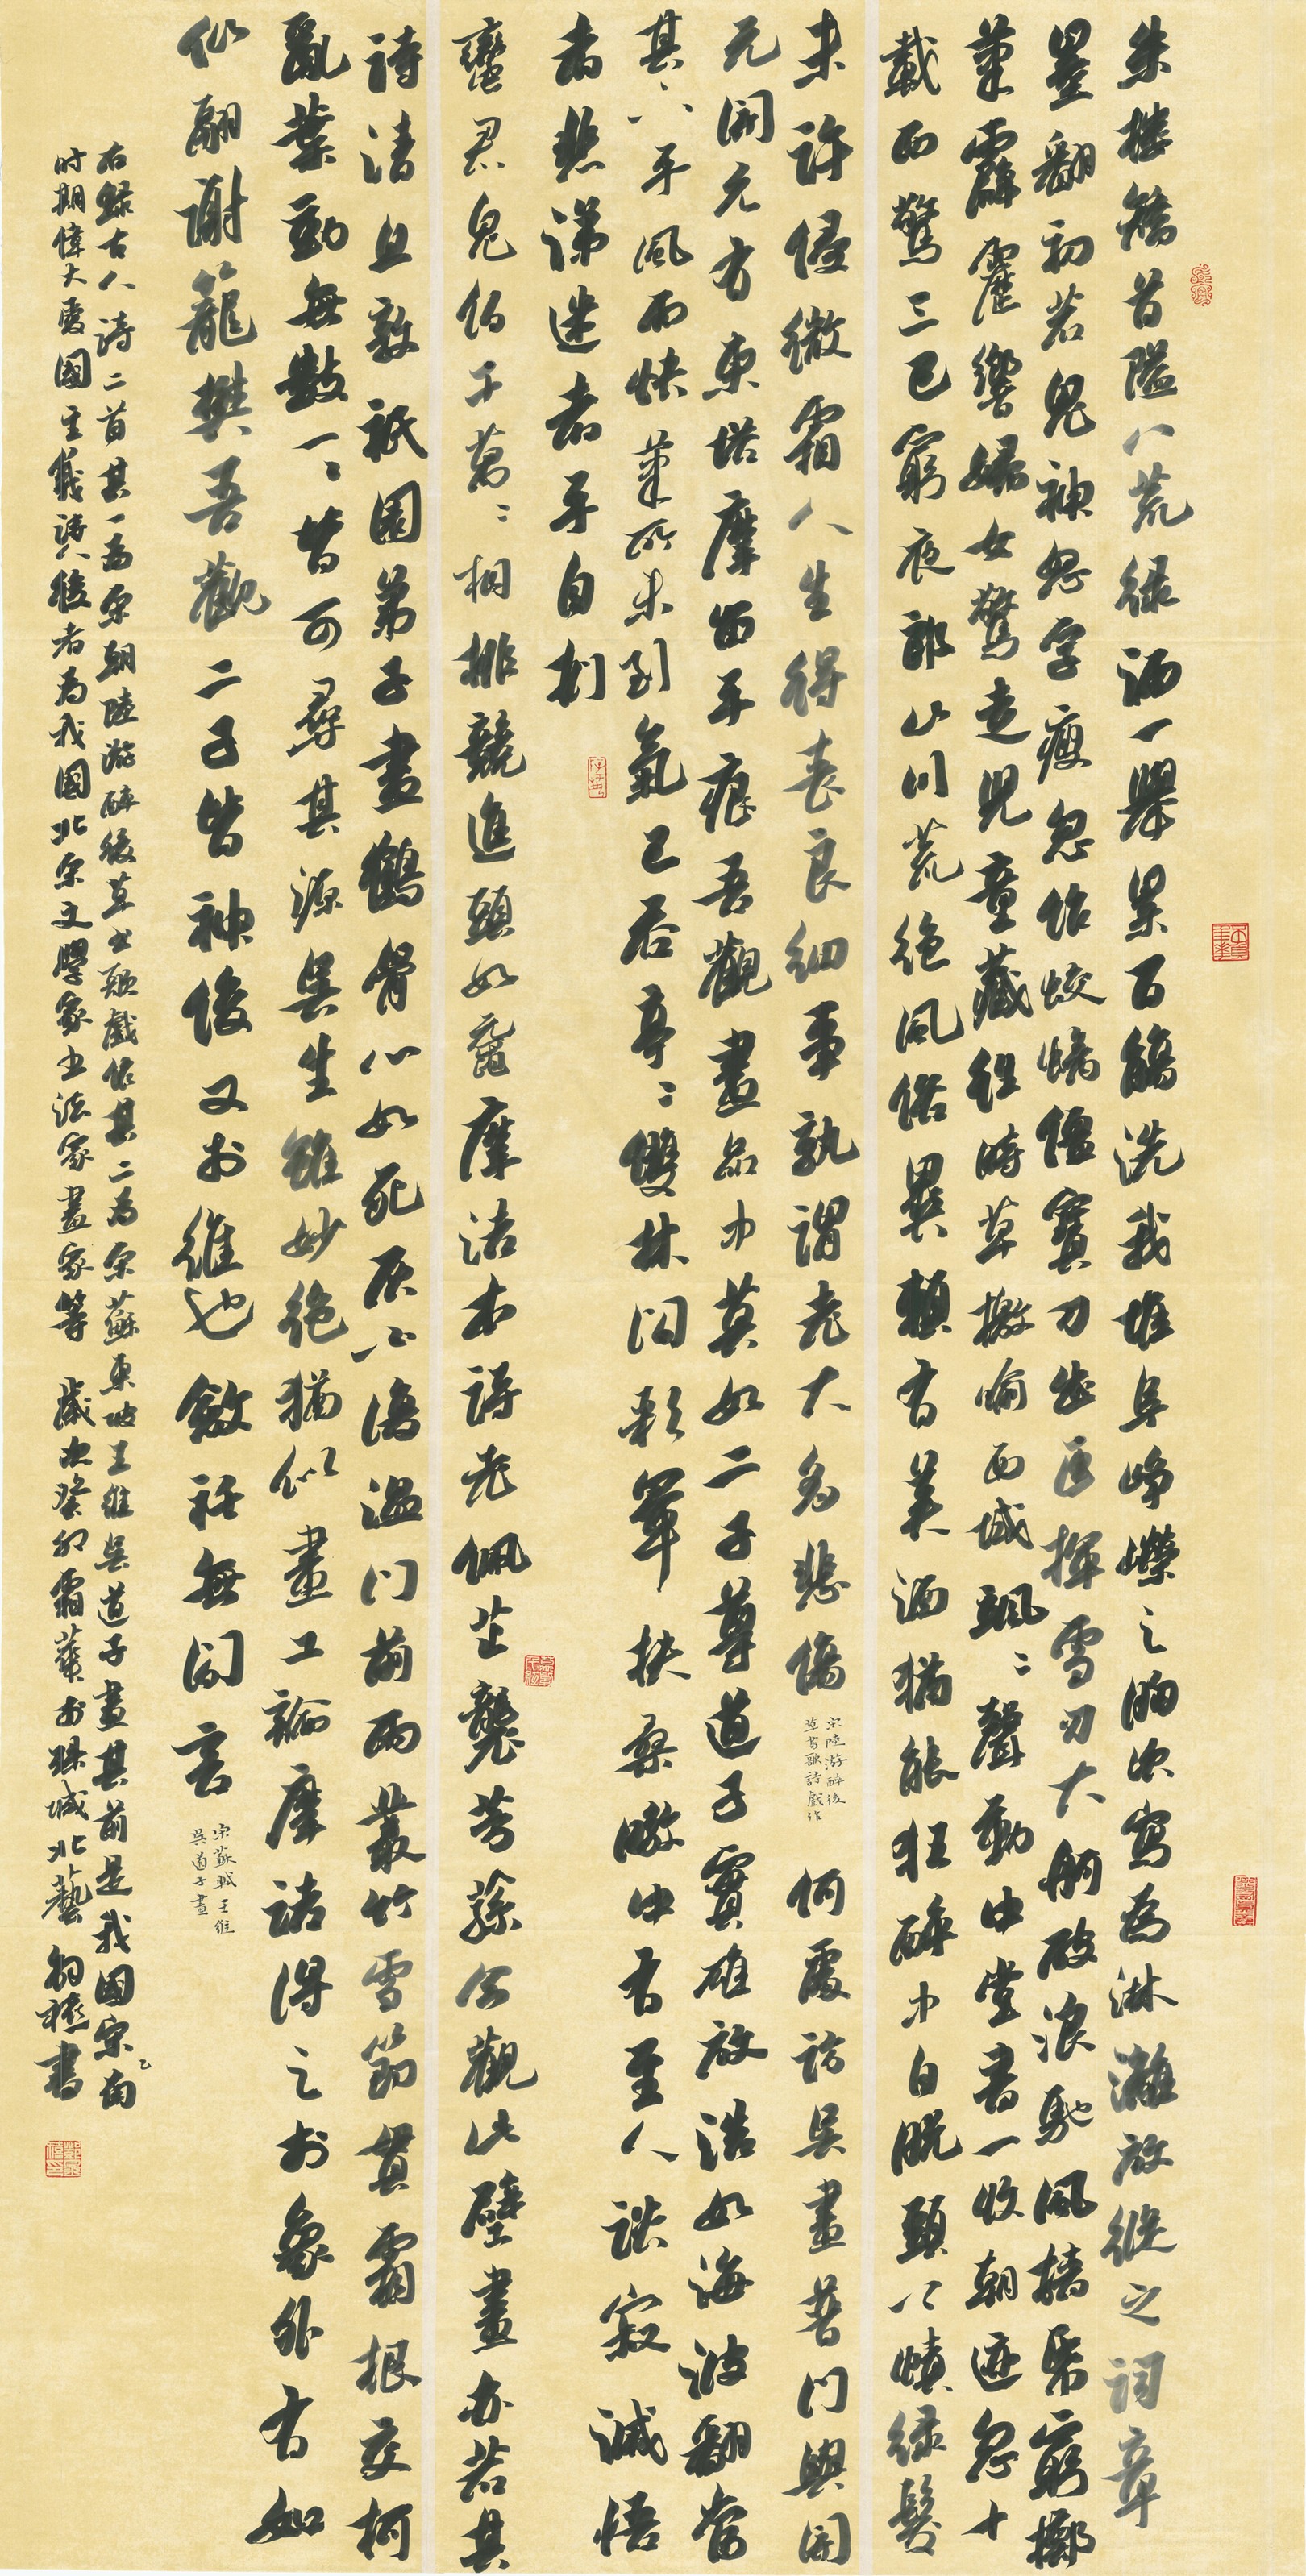 朱樓矯首隘八荒綠酒一舉累百觴洗我堆阜崢嶸之胸次寫為淋漓放縱之詞章
墨翻初若鬼神怒字瘦忽作蛟螭僵寶刀出匣揮雪刃大舸破浪馳風檣紙窮擲
筆霹靂響婦女驚走兒童藏往時草檄喻西域颯颯聲動中堂書一收朝迹忽十
載西驚三巴窮夜郎山川荒絕風俗異賴有美酒猶能狂醉中自脫頭上幘綠髮
未許侵微霜人生得喪良細事孰謂老大多悲傷
宋陸游醉後
草書歌詩戲作
何處訪吳畫普門與開
元開元有東塔摩詰手痕吾觀畫品中莫如二子尊道子實雄放浩如海波翻當
其下手風雨快筆所未到氣已吞亭亭雙林間彩暈扶桑暾中有至人談寂滅悟
者悲涕迷者手自捫
蠻君鬼伯千萬萬相排競進頭如黿摩詰本詩老佩芷襲芳蓀今觀此壁畫亦若其
詩清且敦祇園弟子盡鶴骨心如死灰不復溫門前兩叢竹雪節貫霜根交柯
亂葉動無數一一皆可尋其源吳生雖妙絕猶似畫工論摩詰得之於象外有如
仙翮謝籠樊吾觀二子皆神俊又於維也斂衽無間言
宋蘇軾王維
吳道子畫
右錄古人詩二首其一為宋朝陸游醉後草書歌戲作其二為宋蘇東坡王維吳道子畫其前是我國宋南
時期偉大愛國主義詩人後者為我國北宋文學家書法家畫家等 歲次癸卯霜葉於珠城北藝
書